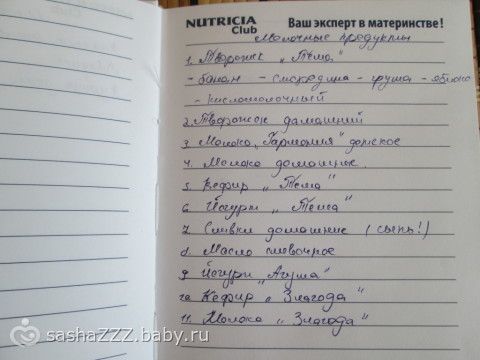 NUTRICIA Club Ваш эксперт в материнстве!
Молочные продукты
1. Творожок „Тёма"
- банан - смородина - груша - яблоко
- кисломолочный
2. Творожок домашний
3. Молоко „Гармония" донское
4. Молоко домашнее
5. Кефир „Тёма"
6. Йогурт „Тёма"
7. Сливки домашние (сыпь!)
8. Масло сливочное
9 Йогурт „Агуша"
10 Кефир „Злагода"
11. Молоко „Злагода"
sashaZZZ.baby.ru